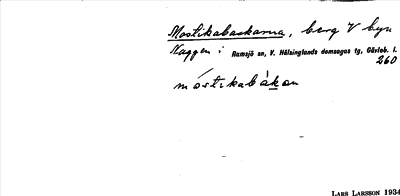 Mostikabackarna, berg V byn
Kaggen i Ramsjö sn, V. Hälsinglands domsagas tg, Gävleb. l.
260
móstikabákan
LARS LARSSON 1934